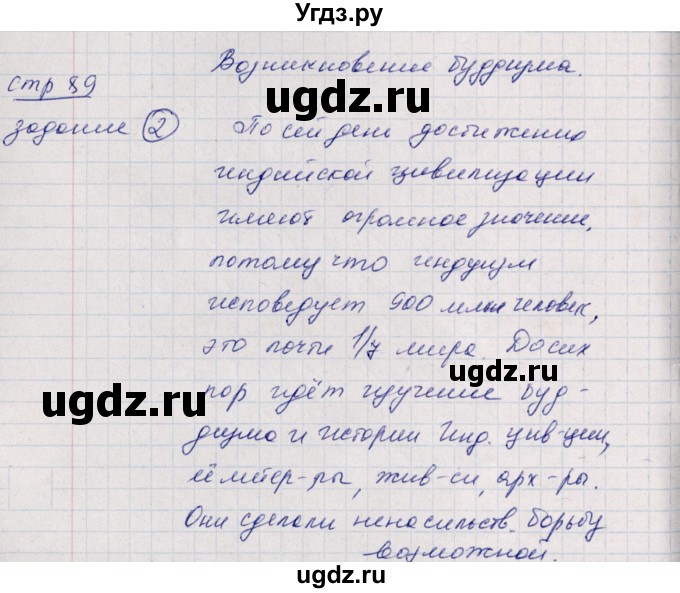 Угдз.ру
Возникновение буддизма.
стр 89
задание ②
По сей день достижения
индийской цивилизации
имеют огромное значение,
потому что индуизм
исповедует 900 млн человек,
это почти 1/7 мира. До сих
пор идёт изучение буд-
дизма и истории Инд. цив-ции,
её литер-ры, жив-си, арх-ры.
Они сделали ненасильств. борьбу
возможной.
ugdz.ru
ugdz.ru
ugdz.ru
ugdz.ru
ugdz.ru